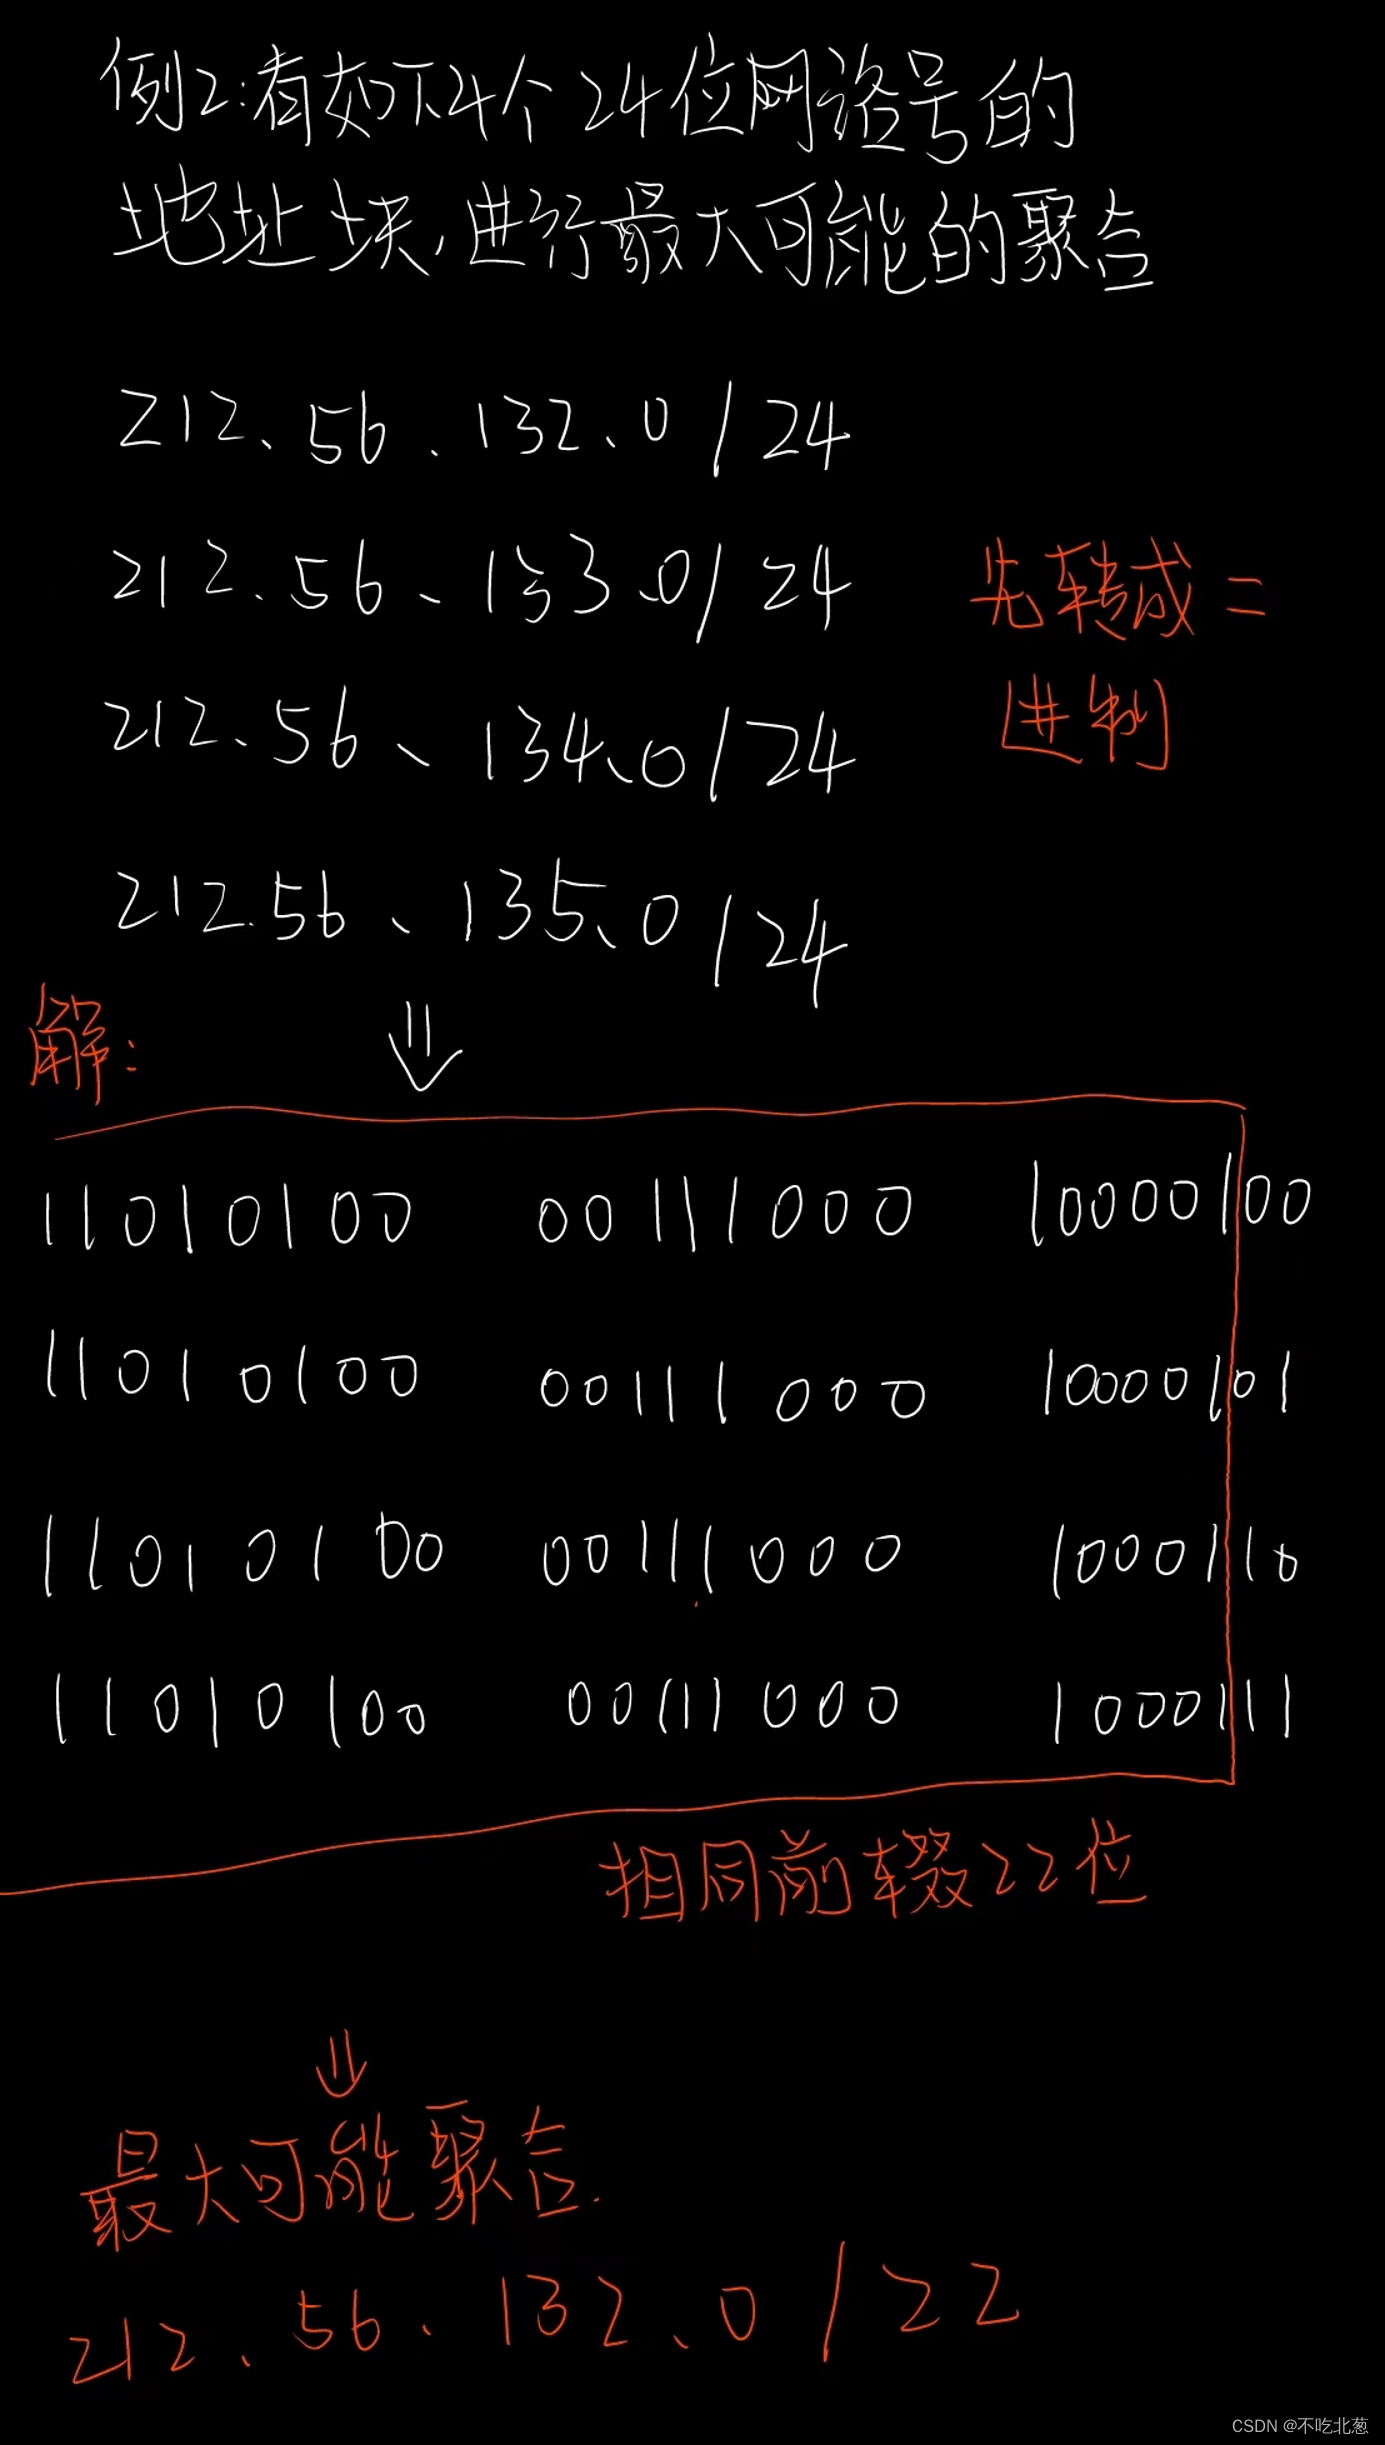 例2:有如下4个24位网络号的
地址块,进行最大可能的聚合
212.56.132.0/24
212.56.133.0/24
先转成二
进制
212.56.134.0/24
212.56.135.0/24
解:
⇓
11010100 00111000 10000100
11010100 00111000 10000101
11010100 00111000 1000110
11010100 00111000 1000111
相同前缀22位
⇓
最大可能聚合.
212.56.132.0/22
CSDN @不吃北葱